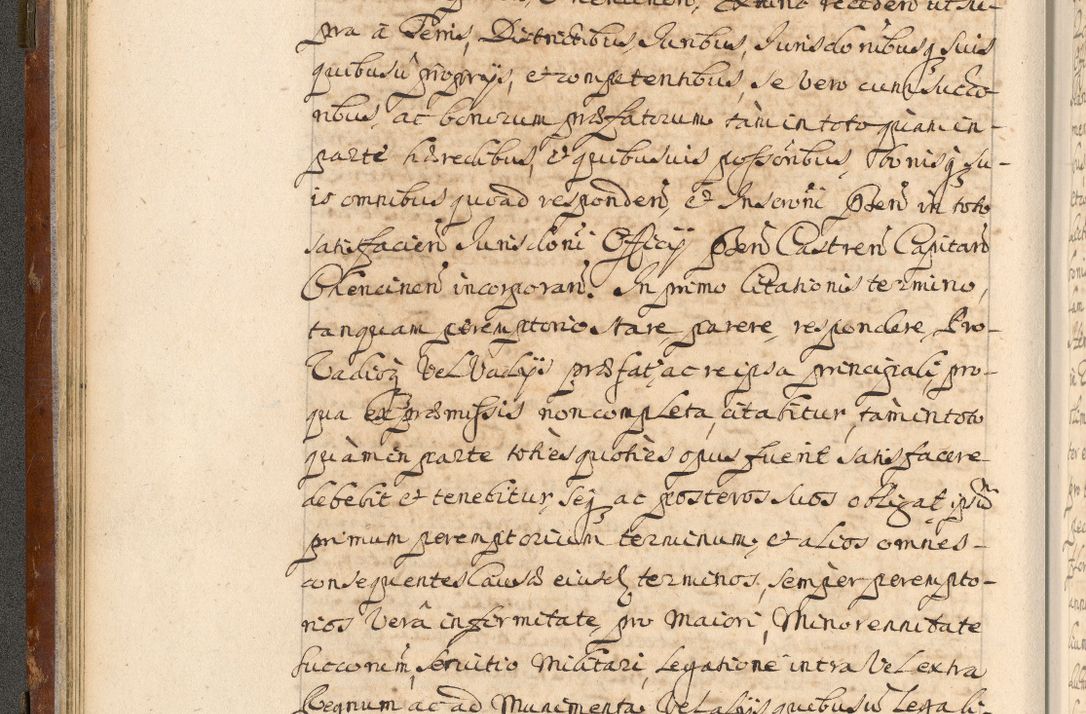 pra à Terris, Districtibus Juribus, Jurisdonibusq suis
quibusũ proprijs, et competentibus, se vero cum Succo-
ribus, ac bonorum præfatorum tàm in toto quàm in-
parte hæredibus, et quibusuis possoribus, bonisq su-
is omnibus quoad responden, et Inseroni Pten in toto
satisfacien Jurisdoni Officij Pten Castren Capitan
Osviencinen incorporan. In primo Citationis termino,
tanquam peremptorio stare, parere, respondere, Pro
Vadioq Vel Vadijs præfat, ac re ipsa principali, pro-
qua ex præmissis non completa, citabitur, tàm in toto
quàm in parte toties quoties opus fuerit satisfacere
debebit et tenebitur, seq ac posteros suos obligat, ipsũ
primum peremptorium terminum, et alios omnes-
consequentes Causæ eiusd terminos, semper perempto-
rios Verâ infirmitate, pro Maiori, Minorennitate
succorum, Seruitio Militari, Legatione intra Vel extra
Regnum ac ad Munimenta Vel alijs quibusũ Legali-